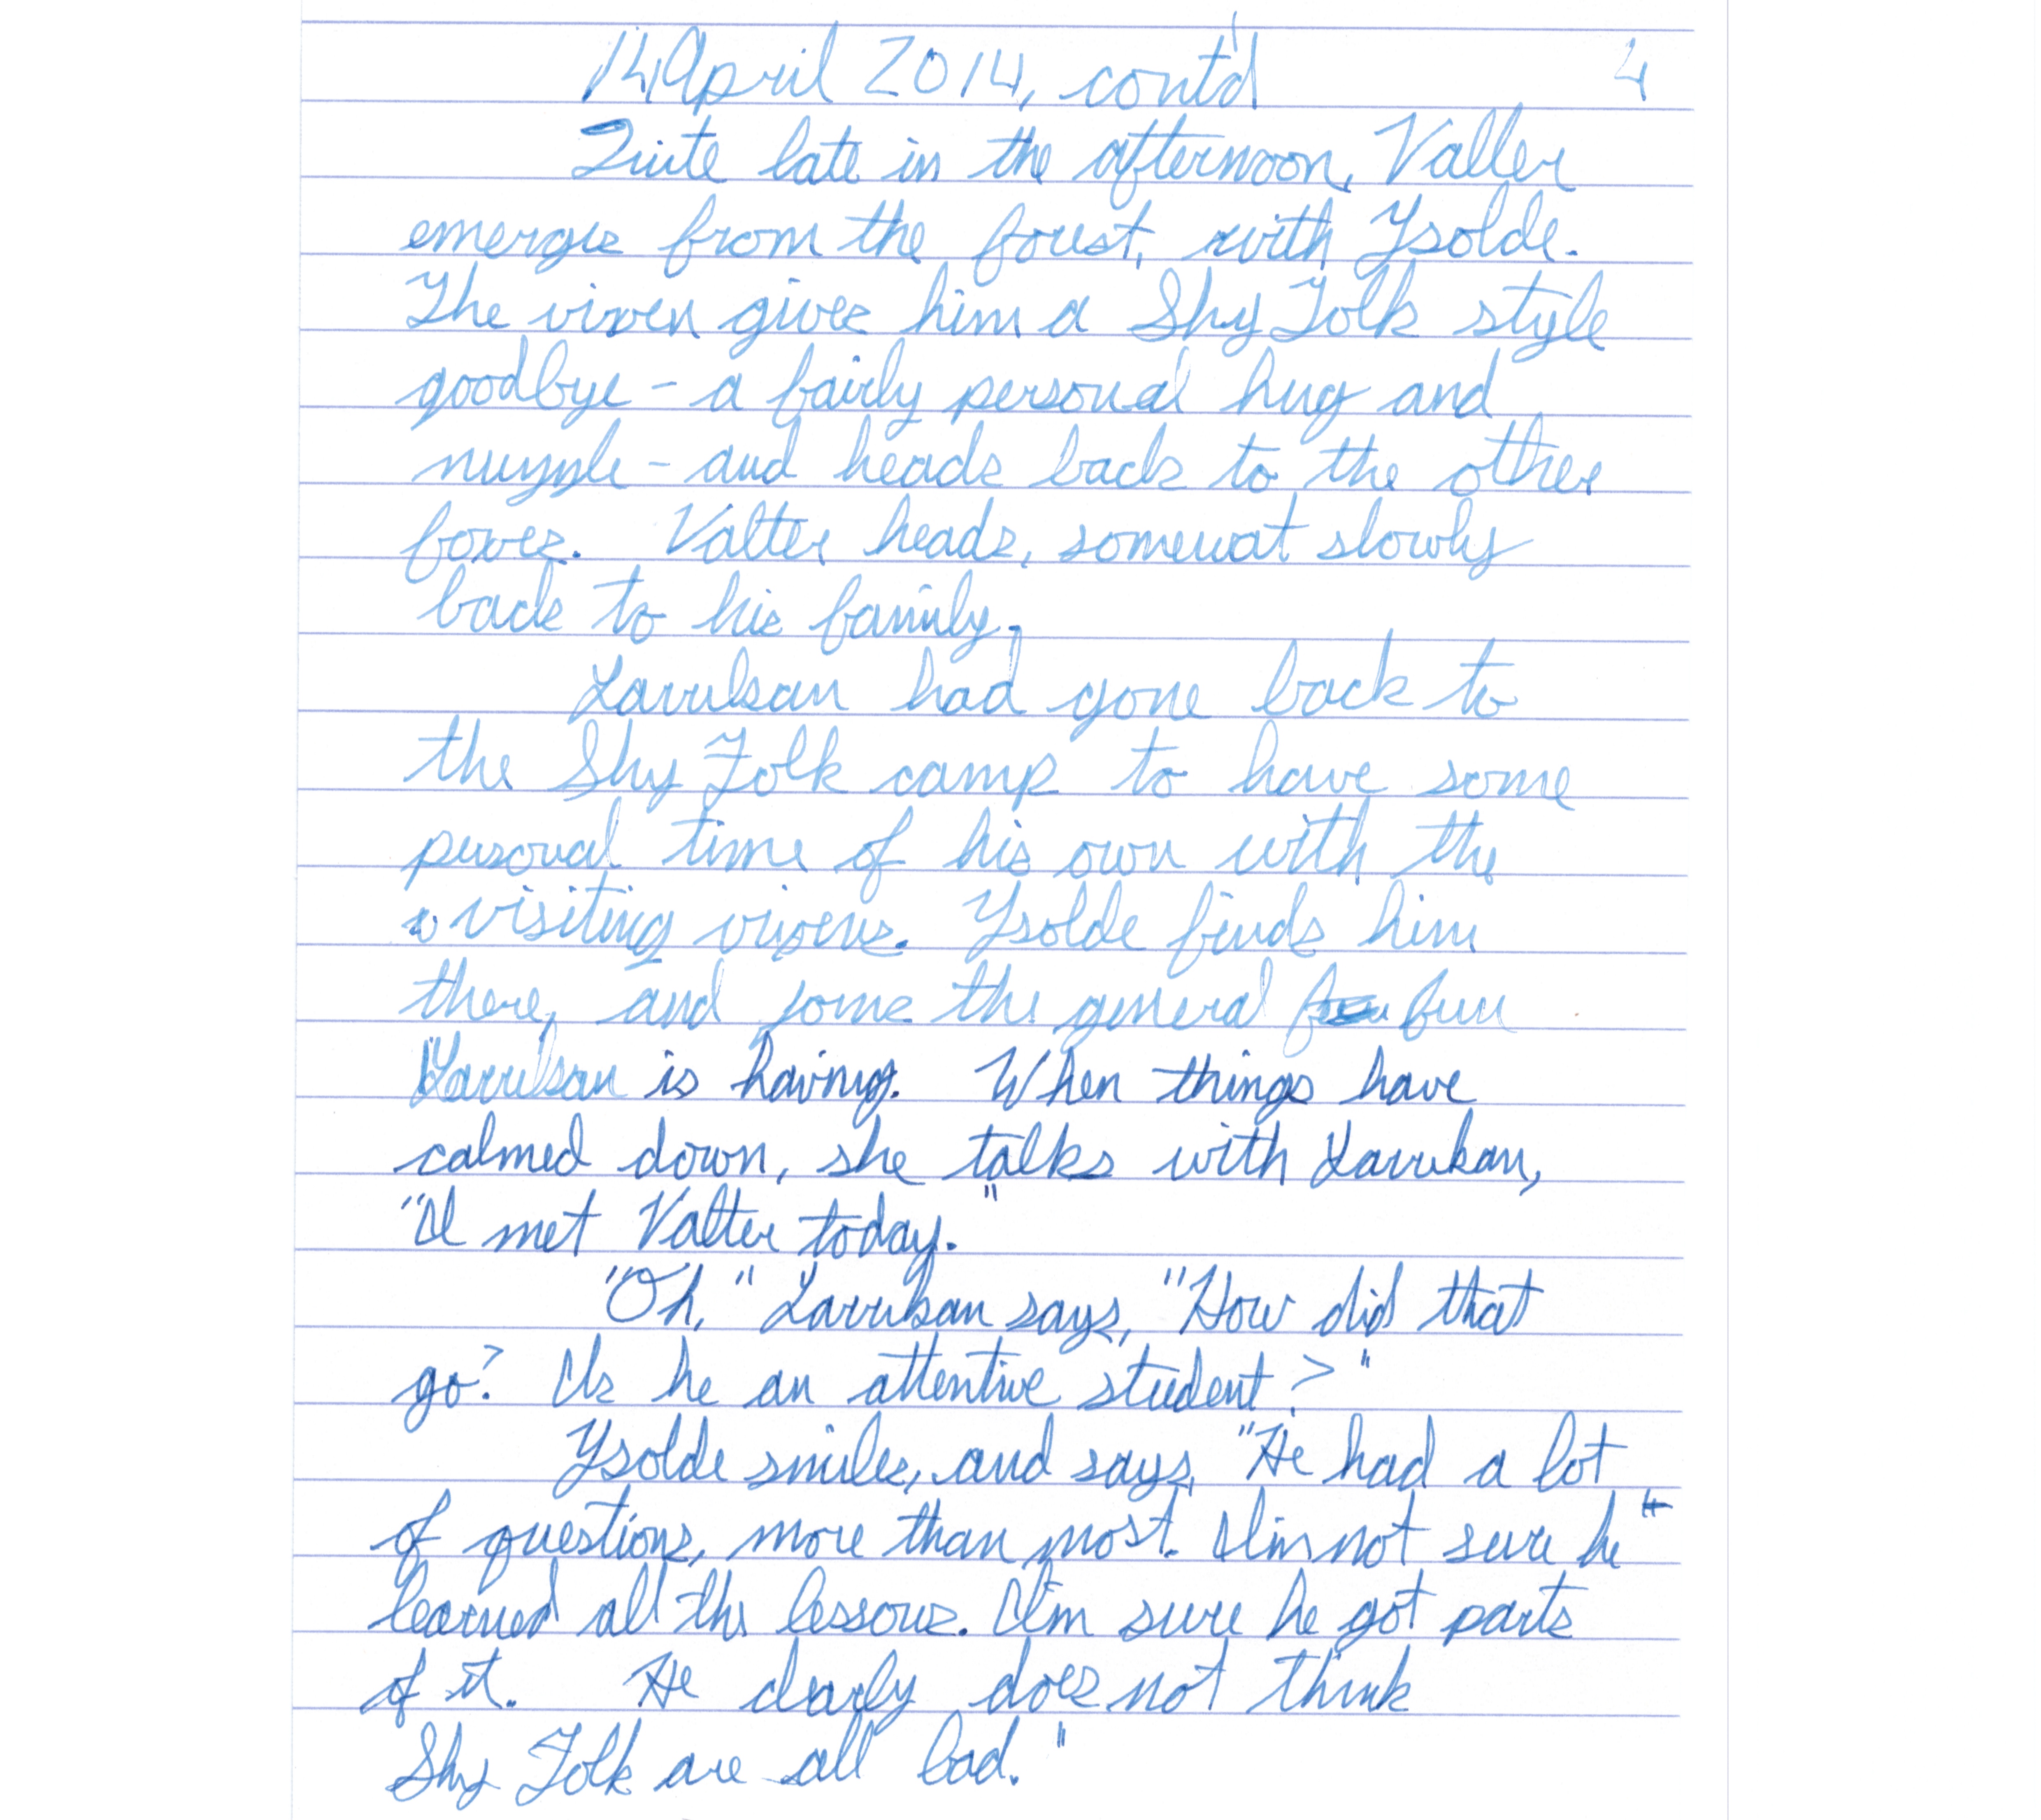 14 April 2014, cont'd 4
Quite late in the afternoon, Valter
emerges from the forest, with Ysolde.
The vixen gives him a Shy Folk style
goodbye - a fairly personal hug and
nuzzle - and heads back to the other
foxes. Valter heads, somewat slowly
back to his family.
Larrikan had gone back to
the Shy Folk camp to have some
personal time of his own with the
visiting vixens. Ysolde finds him
there, and joins the general fun
Larrikan is having. When things have
calmed down, she talks with Larrikan,
"I met Valter today."
"Oh," Larrikan says, "How did that
go? Is he an attentive student?"
Ysolde smiles, and says, "He had a lot
of questions, more than most. I'm not sure he"
learned all the lessons. I'm sure he got parts
of it. He clearly does not think
Shy Folk are all bad."